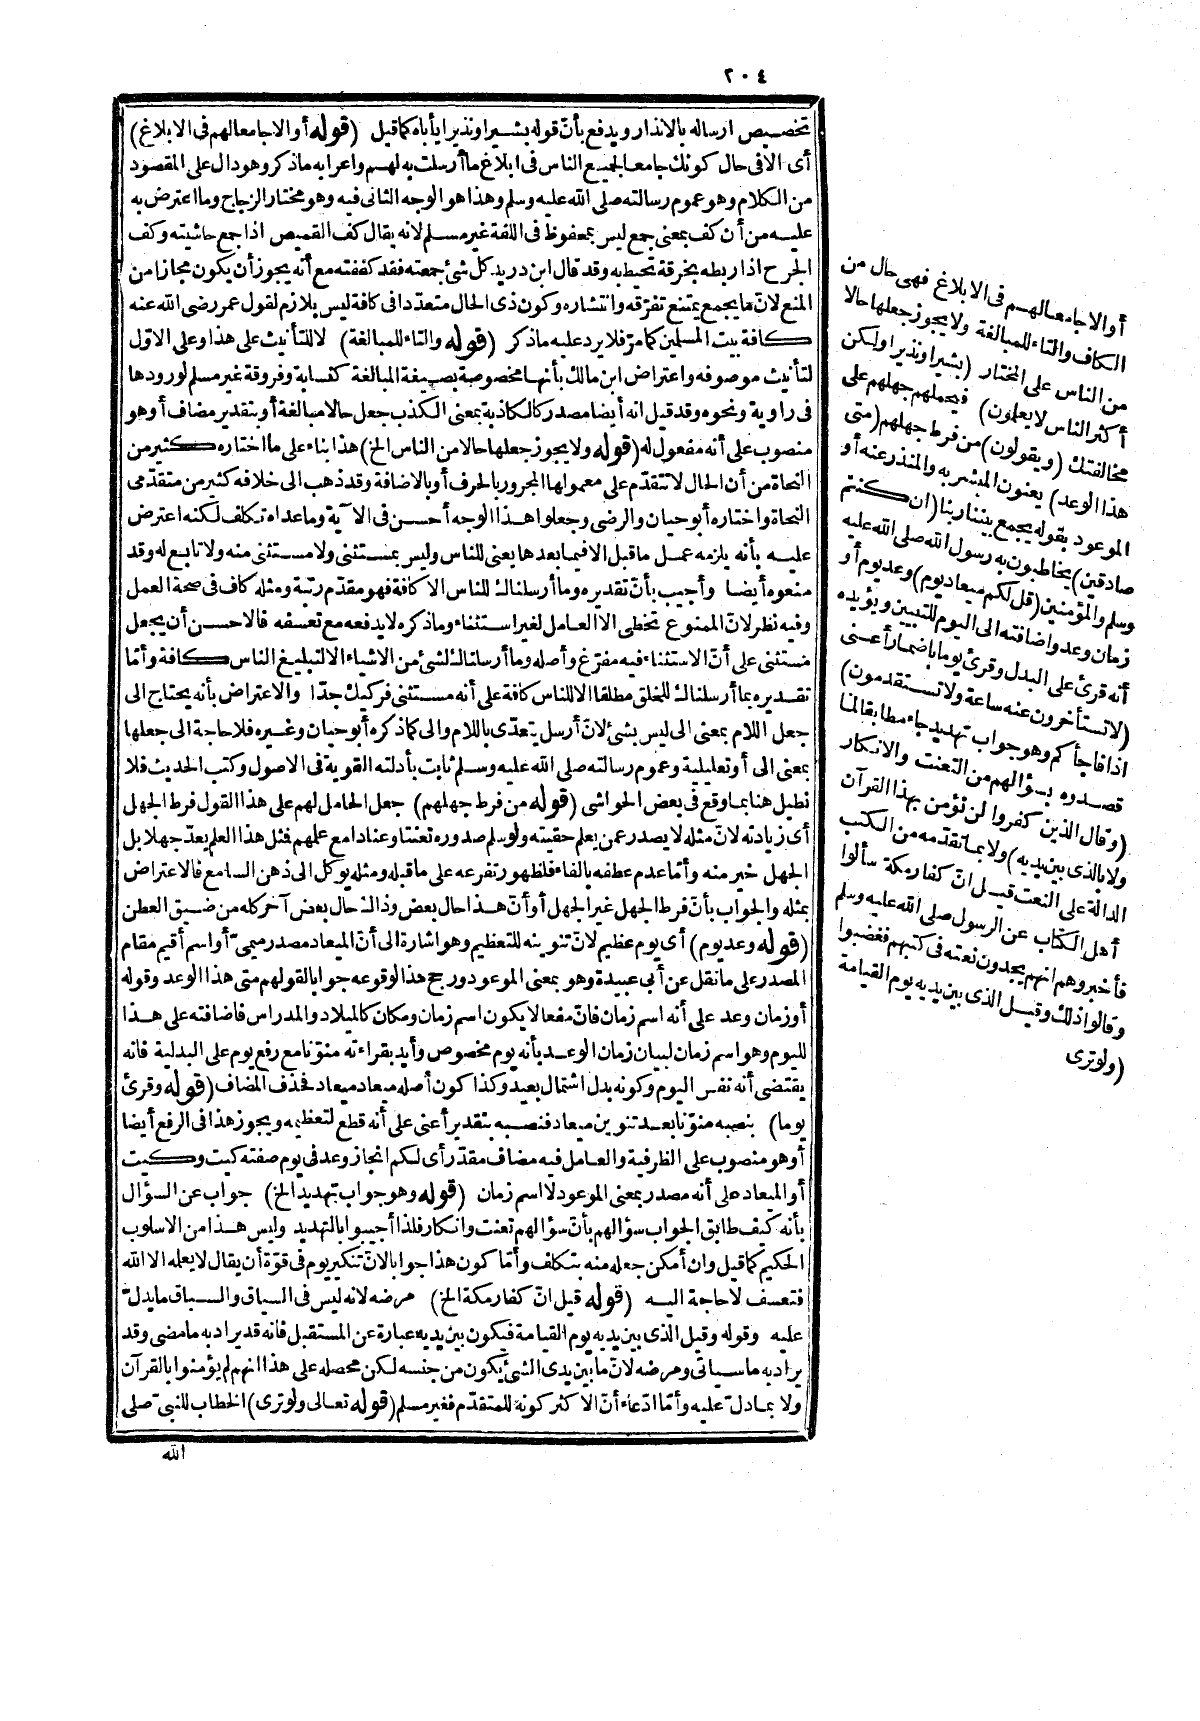 ٢٠٤
تخصيص ارساله بالانذار ويدفع بأن قوله بشيرا ونذيرا يأباه كما قيل (قوله أو الا جامعا لهم فى الابلاغ)
أى الا فى حال كونك جامعا لجميع الناس فى ابلاغ ما أرسلت به لهم واعرابه ماذكر وهو دال على المقصود
من الكلام وهو عموم رسالته صلى الله عليه وسلم وهذا هو الوجه الثانى فيه وهو مختار الزجاج وما اعترض به
عليه من أن كف بمعنى جمع ليس بمحفوظ فى اللغة غير مسلم لانه يقال كف القميص اذا جمع حاشيته وكف
الجرح اذا ربطه بخرقة تحيط به وقد قال ابن دريد كل شئ جمعته فقد كففته مع أنه يجوز أن يكون مجازا من
المنع لانّ ما يجمع يمتنع تفرّقه وانتشاره وكون ذى الحال متعدّدا فى كافة ليس بلازم لقول عمر رضى الله عنه
كافة بيت المسلمين كما مرّ فلا يرد عليه ماذكر (قوله والتاء للمبالغة) لا للتأنيث على هذا وعلى الاوّل
لتأنيث موصوفه واعتراض ابن مالك بأنها مخصوصة بصيغة المبالغة كنسابة وفروقة غير مسلم لورودها
فى راوية ونحوه وقد قيل انه أيضا مصدر كالكاذبة بمعنى الكذب جعل حالا مبالغة أو بتقدير مضاف أو هو
منصوب على أنه مفعول له (قوله ولا يجوز جعلها حالا من الناس الخ) هذا بناء على ما اختاره كثير من
النحاة من أن الحال لا تتقدّم على معمولها المجرور بالحرف أو بالاضافة وقد ذهب الى خلافه كثير من متقدّمى
النحاة واختاره أبو حيان والرضى وجعلوا هذا الوجه أحسن فى الآية وما عداه تكلف لكنه اعترض
عليه بأنه يلزمه عمل ماقبل الا فيما بعدها يعنى للناس وليس بمستثنى ولا مستثنى منه ولا تابع له وقد
منعوه أيضا وأجيب بأنّ تقديره وما أرسلناك للناس الا كافة فهو مقدّم رتبة ومثله كاف فى صحة العمل
وفيه نظر لانّ الممنوع تخطى الا العامل لغير استثناء وماذكره لا يدفعه مع تعسفه فالاحسن أن يجعل
مستثنى على أنّ الاستثناء فيه مفرّغ وأصله وما أرسلناك لشئ من الاشياء الا لتبليغ الناس كافة وأمّا
تقديره بما أرسلناك للخلق مطلقا الا للناس كافة على أنه مستثنى فركيك جدّا والاعتراض بأنه يحتاج الى
جعل اللام بمعنى الى ليس بشئ لانّ أرسل يتعدّى باللام والى كما ذكره أبو حيان وغيره فلا حاجة الى جعلها
بمعنى الى أو تعليلية وعموم رسالته صلى الله عليه وسلم ثابت بأدلته القوية فى الاصول وكتب الحديث فلا
نطيل هنا بما وقع فى بعض الحواشى (قوله من فرط جهلهم) جعل الحامل لهم على هذا القول فرط الجهل
أى زيادته لانّ مثله لا يصدر عمن يعلم حقيته ولو سلم صدوره تعنتا وعنادا مع علمهم فمثل هذا العلم يعدّ جهلا بل
الجهل خير منه وأمّا عدم عطفه بالفاء فلظهور تفرعه على ماقبله ومثله يوكل الى ذهن السامع فالاعتراض
بمثله والجواب بأنّ فرط الجهل غير الجهل أو أنّ هذا حال بعض وذاك حال بعض آخر كله من ضيق العطن
(قوله وعد يوم) أى يوم عظيم لانّ تنوينه للتعظيم وهو اشارة الى أنّ الميعاد مصدر ميمىّ أو اسم أقيم مقام
المصدر على مانقل عن أبى عبيدة وهو بمعنى الموعود ورجح هذا لوقوعه جوابا لقولهم متى هذا الوعد وقوله
أو زمان وعد على أنه اسم زمان فانّ مفعالا يكون اسم زمان ومكان كالميلاد والمدراس فاضافته على هذا
لليوم وهو اسم زمان لبيان زمان الوعد بأنه يوم مخصوص وأيد بقراءته منوّنا مع رفع يوم على البدلية فانه
يقتضى أنه نفس اليوم وكونه بدل اشتمال بعيد وكذا كون أصله ميعاد ميعاد فحذف المضاف (قوله وقرئ
يوما) بنصبه منوّنا بعد تنوين ميعاد فنصبه بتقدير أعنى على أنه قطع لتعظيمه ويجوز هذا فى الرفع أيضا
أو هو منصوب على الظرفية والعامل فيه مضاف مقدّر أى لكم انجاز وعد فى يوم صفته كيت وكيت
أو الميعاد على أنه مصدر بمعنى الموعود لا اسم زمان (قوله وهو جواب تهديد الخ) جواب عن السؤال
بأنه كيف طابق الجواب سؤالهم بأنّ سؤالهم تعنت وانكار فلذا أجيبوا بالتهديد وليس هذا من الاسلوب
الحكيم كما قيل وان أمكن جعله منه بتكلف وأمّا كون هذا جوابا لانّ تنكير يوم فى قوّة أن يقال لا يعلمه الا الله
فتعسف لا حاجة اليه (قوله قيل انّ كفار مكة الخ) مرضه لانه ليس فى السياق والسباق ما يدلّ
عليه وقوله وقيل الذى بين يديه يوم القيامة فيكون بين يديه عبارة عن المستقبل فانه قد يراد به مامضى وقد
يراد به ماسيأتى ومرضه لانّ مابين يدى الشئ يكون من جنسه لكن محصله على هذا انهم لم يؤمنوا بالقرآن
ولا بما دلّ عليه وأمّا ادّعاء أنّ الاكثر كونه للمتقدّم فغير مسلم (قوله تعالى ولو ترى) الخطاب للنبىّ صلى
الله
أو الا جامعا لهم فى الابلاغ فهى حال من
الكاف والتاء للمبالغة ولا يجوز جعلها حالا
من الناس على المختار (بشيرا ونذيرا ولكن
أكثر الناس لا يعلمون) فيحملهم جهلهم على
مخالفتك (ويقولون) من فرط جهلهم (متى
هذا الوعد) يعنون المبشر به والمنذر عنه أو
الموعود بقوله يجمع بيننا ربنا (ان كنتم
صادقين) يخاطبون به رسول الله صلى الله عليه
وسلم والمؤمنين (قل لكم ميعاد يوم) وعد يوم أو
زمان وعد واضافته الى اليوم للتبيين ويؤيده
أنه قرئ على البدل وقرئ يوما باضمار أعنى
(لا تستأخرون عنه ساعة ولا تستقدمون)
اذا فاجأكم وهو جواب تهديد جاء مطابقا لما
قصدوه بسؤالهم من التعنت والانكار
(وقال الذين كفروا لن نؤمن بهذا القرآن
ولا بالذى بين يديه) ولا بما تقدّمه من الكتب
الدالة على النعت قيل انّ كفار مكة سألوا
أهل الكتاب عن الرسول صلى الله عليه وسلم
فأخبروهم انهم يجدون نعته فى كتبهم فغضبوا
وقالوا ذلك وقيل الذى بين يديه يوم القيامة
(ولو ترى